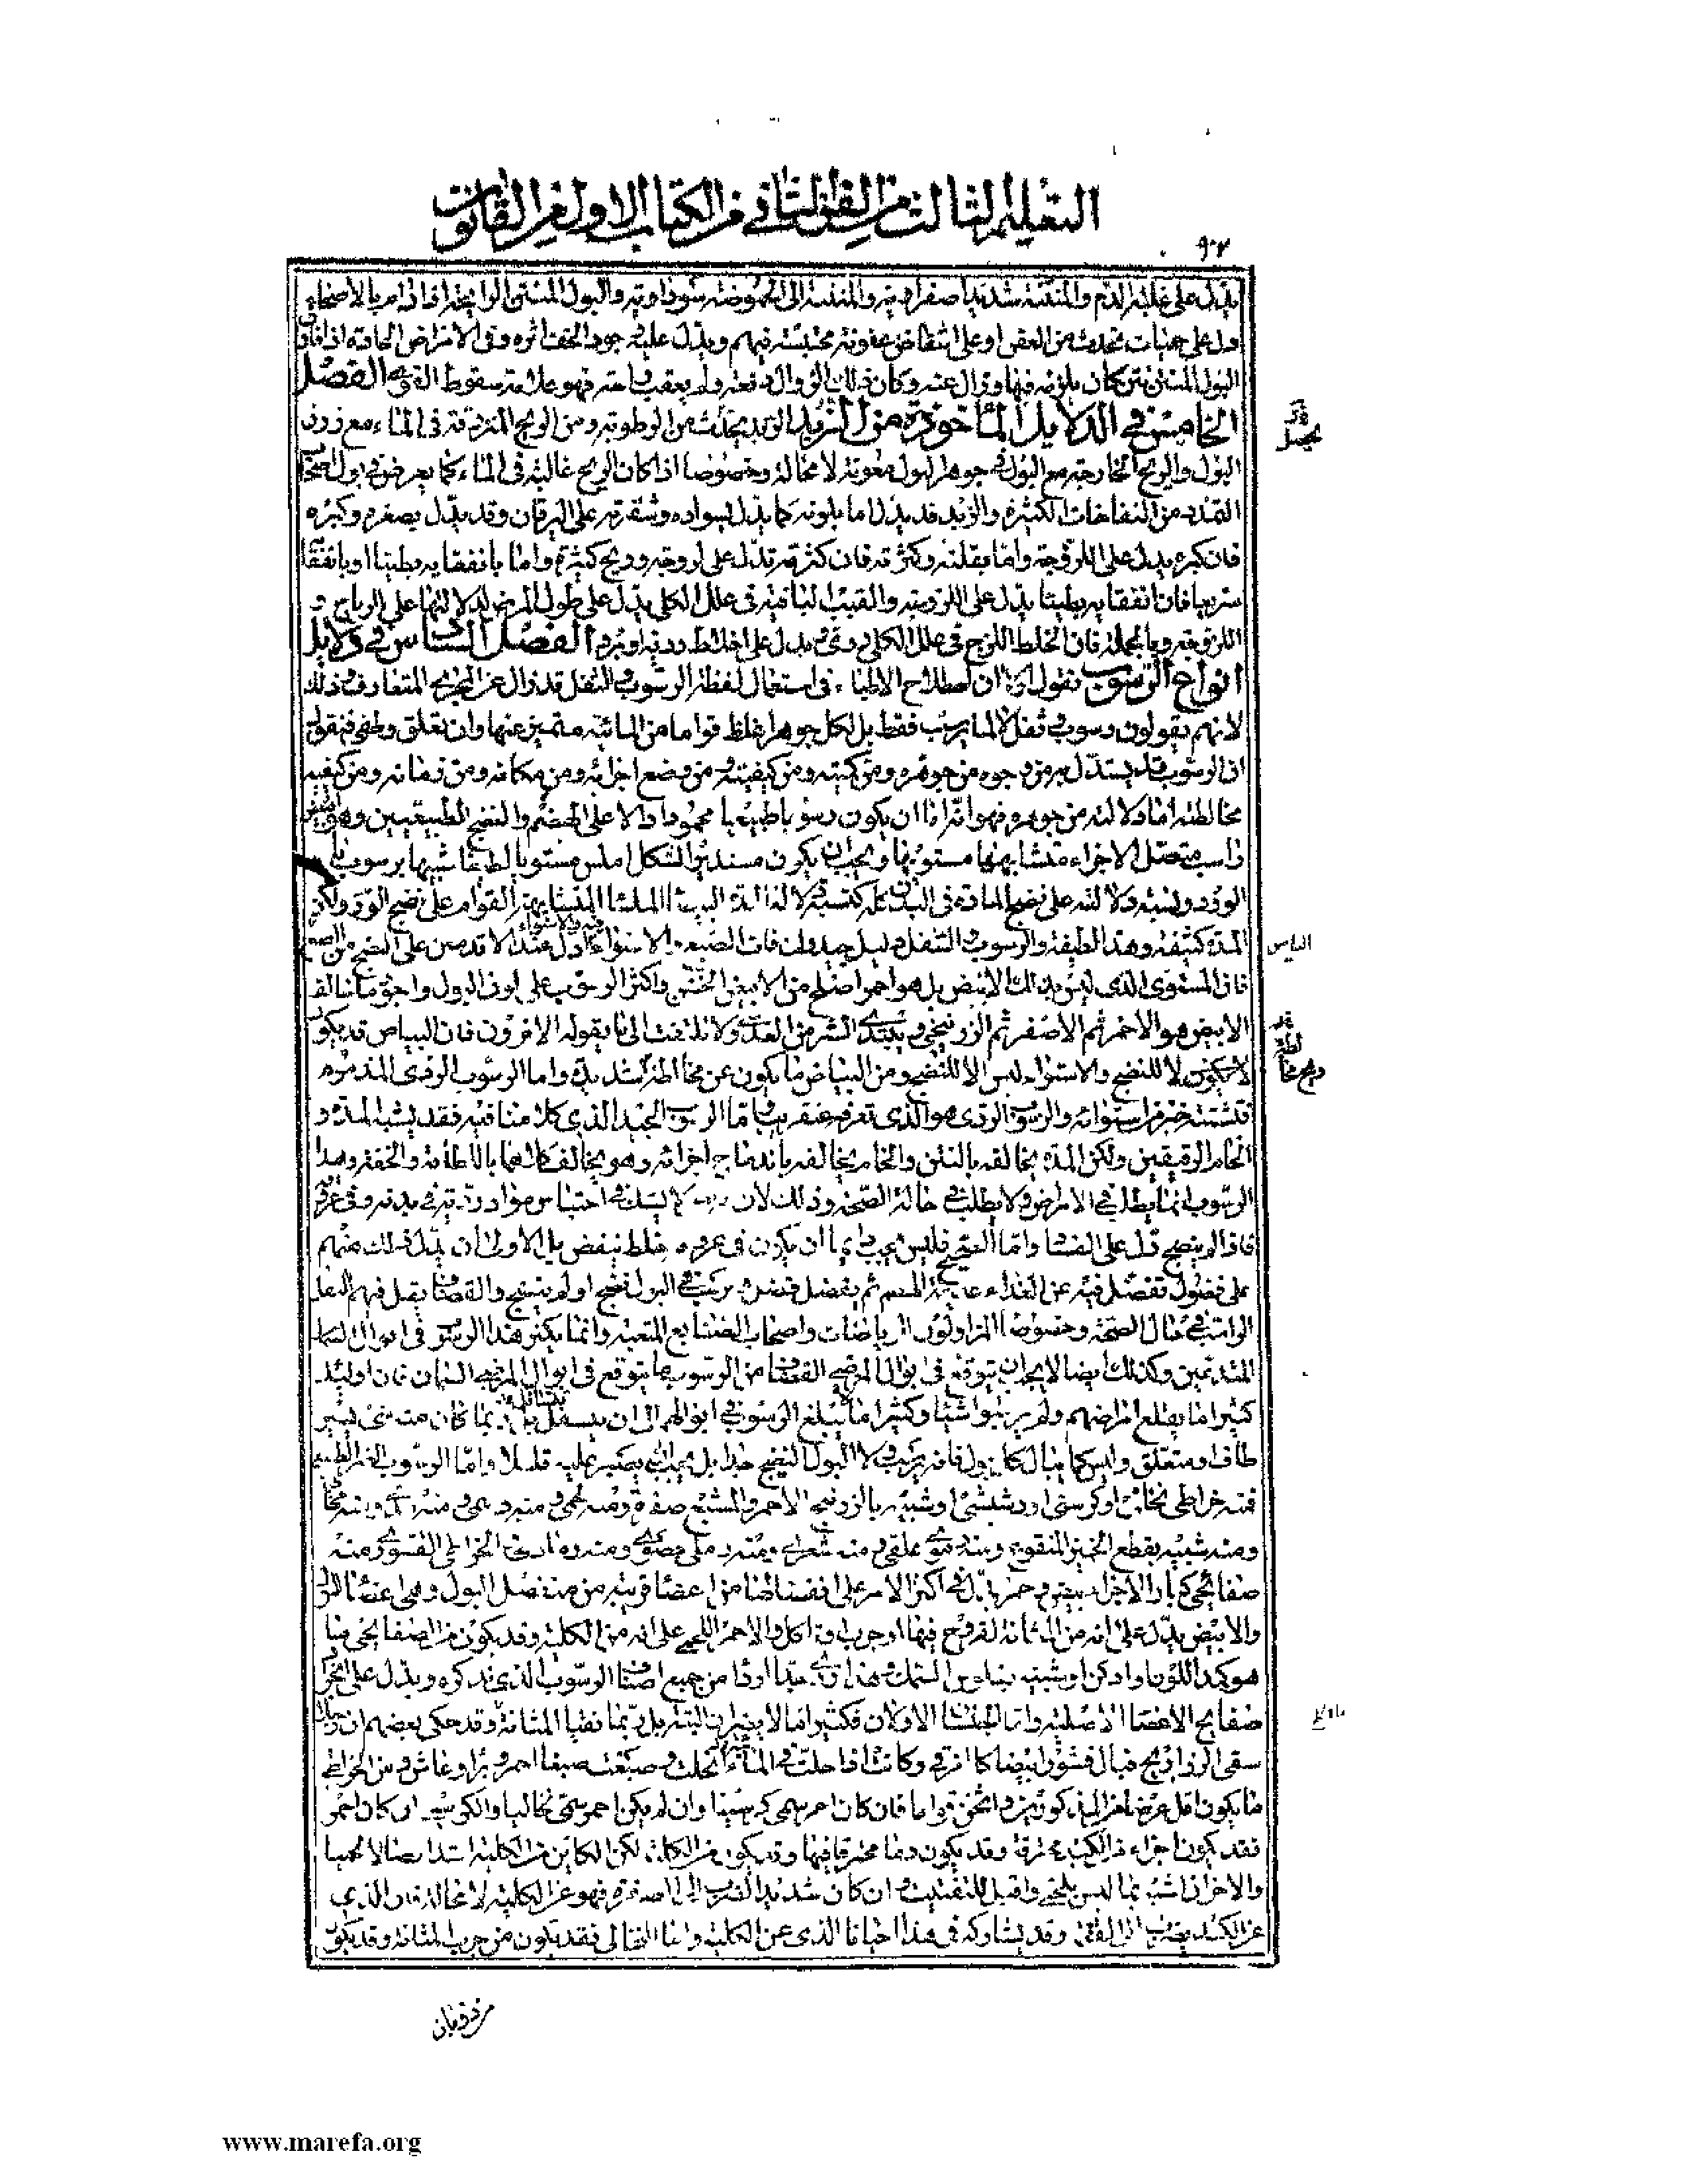 التعليم الثالث من الفن الثاني من الكتاب الاول من القانون
٩٠٢
يدل على غلبة الدم والمنتنة شديدا صفراوية والمنتنة الى الحموضة سوداوية والبول المنتن الرايحة اذا دام بالاصحاء
دل على حميات تحدث من العفن او على انتفاض عفونة محتبسة فيهم ويدل عليه وجود الخف اثره وفي الامراض الحادة اذا فارق
البول المنتن نتن كان يلزمه فيها وزال عنه وكان ذلك الزوال دفعة ولم يعقب راحة فهو علامة سقوط القوى الفصل
الخامس في الدلايل الماخوذة من الزبد الزبد يحدث من الرطوبة ومن الريح المنزرقة في الماء مع زرق
البول والريح الخارجة مع البول في جوهر البول معونة لا محالة وخصوصا اذا كان الريح غالبة في الماء كما يعرض في بول اصحاب
التمدد من النفاخات الكثيرة والزبد قد يدل اما بلونه كما يدل لسواده وشقرته على اليرقان وقد يدل بصغره وكبره
فان كبره يدل على اللزوجة واما بقلته وكثرته فان كثرته تدل على لزوجة وريح كثيرة واما بانفقائه بطيئا او بانفقائه
سريعا فان انفقاءه بطيئا يدل على اللزوجة والقبب الباقية في علل الكلى يدل على طول المرض لدلالتها على الرياح و
اللزوجة وبالجملة فان الخلط اللزج في علل الكلى ردي ويدل على اخلاط ردية وبرد الفصل السادس في دلايل
انواع الرسوب نقول اولا ان اصطلاح الاطباء في استعمال لفظة الرسوب والثفل قد زال عن المجرى المتعارف وذلك
لانهم يقولون رسوب وثفل لا لما يرسب فقط بل لكل جوهر اغلظ قواما من المائية متميز عنها وان تعلق وطفى فنقول
ان الرسوب قد يستدل به من وجوه من جوهره ومن كميته ومن كيفيته ومن وضع اجزائه ومن مكانه ومن زمانه ومن كيفية
مخالطته اما دلالته من جوهره فهو انه اما ان يكون رسوبا طبيعيا محمودا دالا على الهضم والنضج الطبيعيين وهو ابيض
راسب متصل الاجزاء متشابهها مستويها ويجب ان يكون مستدير الشكل املس مستويا لطيفا شبيها برسوب ماء
الورد ونسبة دلالته على نضج المادة في البدن كله كنسبة دلالة المدة البيضاء الملساء المتشابهة القوام على نضج الورم ولكن
المدة كثيفة وهذا لطيفة والرسوب والثفل دليل جيد وان فات الصبغ والاستواء ادل عند الاقدمين على النضج من الصبغ
فان المستوى الذي ليس بذلك الابيض بل هو احمر اصلح من الابيض الخشن واكثر الرسوب على لون البول واجود ما خالف
الابيض هو الاحمر ثم الاصفر ثم الزرنيخي ويبتدى الشر من العدسي ولا تلتفت الى ما يقوله الاخرون فان البياض قد يكون
لا للنضج والاستواء ليس الا للنضج ومن البياض ما يكون عن مخالطة شديدة واما الرسوب الردي المذموم
والرسوب الردى هو الذي تعرفه عن قريب واما الرسوب الجيد الذي كلامنا فيه فقد يشبه المدة و
الخام الرقيقين ولكن المدة يخالفه بالنتن والخام يخالفه باندماج اجزائه وهو يخالف كلاهما باللطافة والخفة وهذا
الرسوب انما يطلب في الامراض ولا يطلب في حالة الصحة وذلك لان المريض لا يشك في احتباس مواد ردية في بدنه وفي عروقه
فاذا لم ينضج دل على الفساد واما الصحيح فليس يجب دايما ان يكون في عروقه خلط ينفض بل الاولى ان يدل ذلك منهم
على فضول تفضل فيه عن الغذاء عديمة الهضم ثم يفضل فضل يرسب في البول نضج او لم ينضج والقضاف يقل فيهم الثفل
الراسب في حال الصحة وخصوصا المزاولون الرياضات واصحاب الصنايع المتعبة وانما يكثر هذا الرسوب في ابوال السمان
المتدعين وكذلك ايضا لا يجب ان يتوقع في ابوال المرضى القضاف من الرسوب ما يتوقع في ابوال المرضى السمان فان اولئك
كثيرا ما يقلع امراضهم ولم يرسبوا شيئا وكثيرا ما لا يبلغ الرسوب في ابوالهم الى ان يتسفل بل ربما كان منه شئ يسير
طاف او متعلق وليس كما يقال كل بول فانه يرسب الا البول النضج جدا بل يجب ان يصبر عليه قليلا واما الرسوب الغير الطبيعي
فمنه خراطي نخالي او كرسني او دشيشي او شبيه بالزرنيخ الاحمر والمشبع صفرة ومنه لحمي ومنه دسمي ومنه مدي ومنه مخاطي
ومنه شبيه بقطع الخمير المنقوع ومنه دموي علقي ومنه شعري ومنه رملي حصوي ومنه رمادي الخراطي القشوري منه
صفائحي كبار الاجزاء بيض وحمر يدل في اكثر الامر على انفصالها من اعضاء قريبة من منفصل البول وهي اعضاء البول
والابيض يدل على انه من المثانة لقروح فيها او جرب او تاكل والاحمر اللحمي على انه من الكلية وقد يكون من الصفائحي ما
هو كمد اللون او ادكن او شبيه بفلوس السمك وهذا ردي جدا اردأ من جميع اصناف الرسوب الذي نذكره ويدل على انجراد
صفايح الاعضاء الاصلية واما الجنسان الاولان فكثيرا ما لا يضران البتة بل ربما نقيا المثانة وقد حكى بعضهم ان رجلا
سقى الذراريح فبال قشورا بيضا كالغرقئ وكانت اذا حلت في الماء انحلت وصبغت صبغا احمر وبرأ وعاش ومن الخراطي
ما يكون اقل عرضا من المذكورين واثخن قواما فان كان احمر سمى كرسنيا وان لم يكن احمر سمى نخاليا والكرسني ان كان احمر
فقد يكون اجزاء من الكبد محترقة وقد يكون دما محترقا فيها وقد يكون من الكلية لكن الكاين من الكلية اشد اتصالا لحميا
والاخران اشبه بما ليس بلحمي واقبل للتفتيت وان كان شديد الضرب الى الصفرة فهو عن الكلية لا محالة فان الذي
عن الكبد يضرب الى القتمة وقد يشاركه في هذا احيانا الذي عن الكلية واما النخالي فقد يكون من جرب المثانة وقد يكون
الناس
www.marefa.org